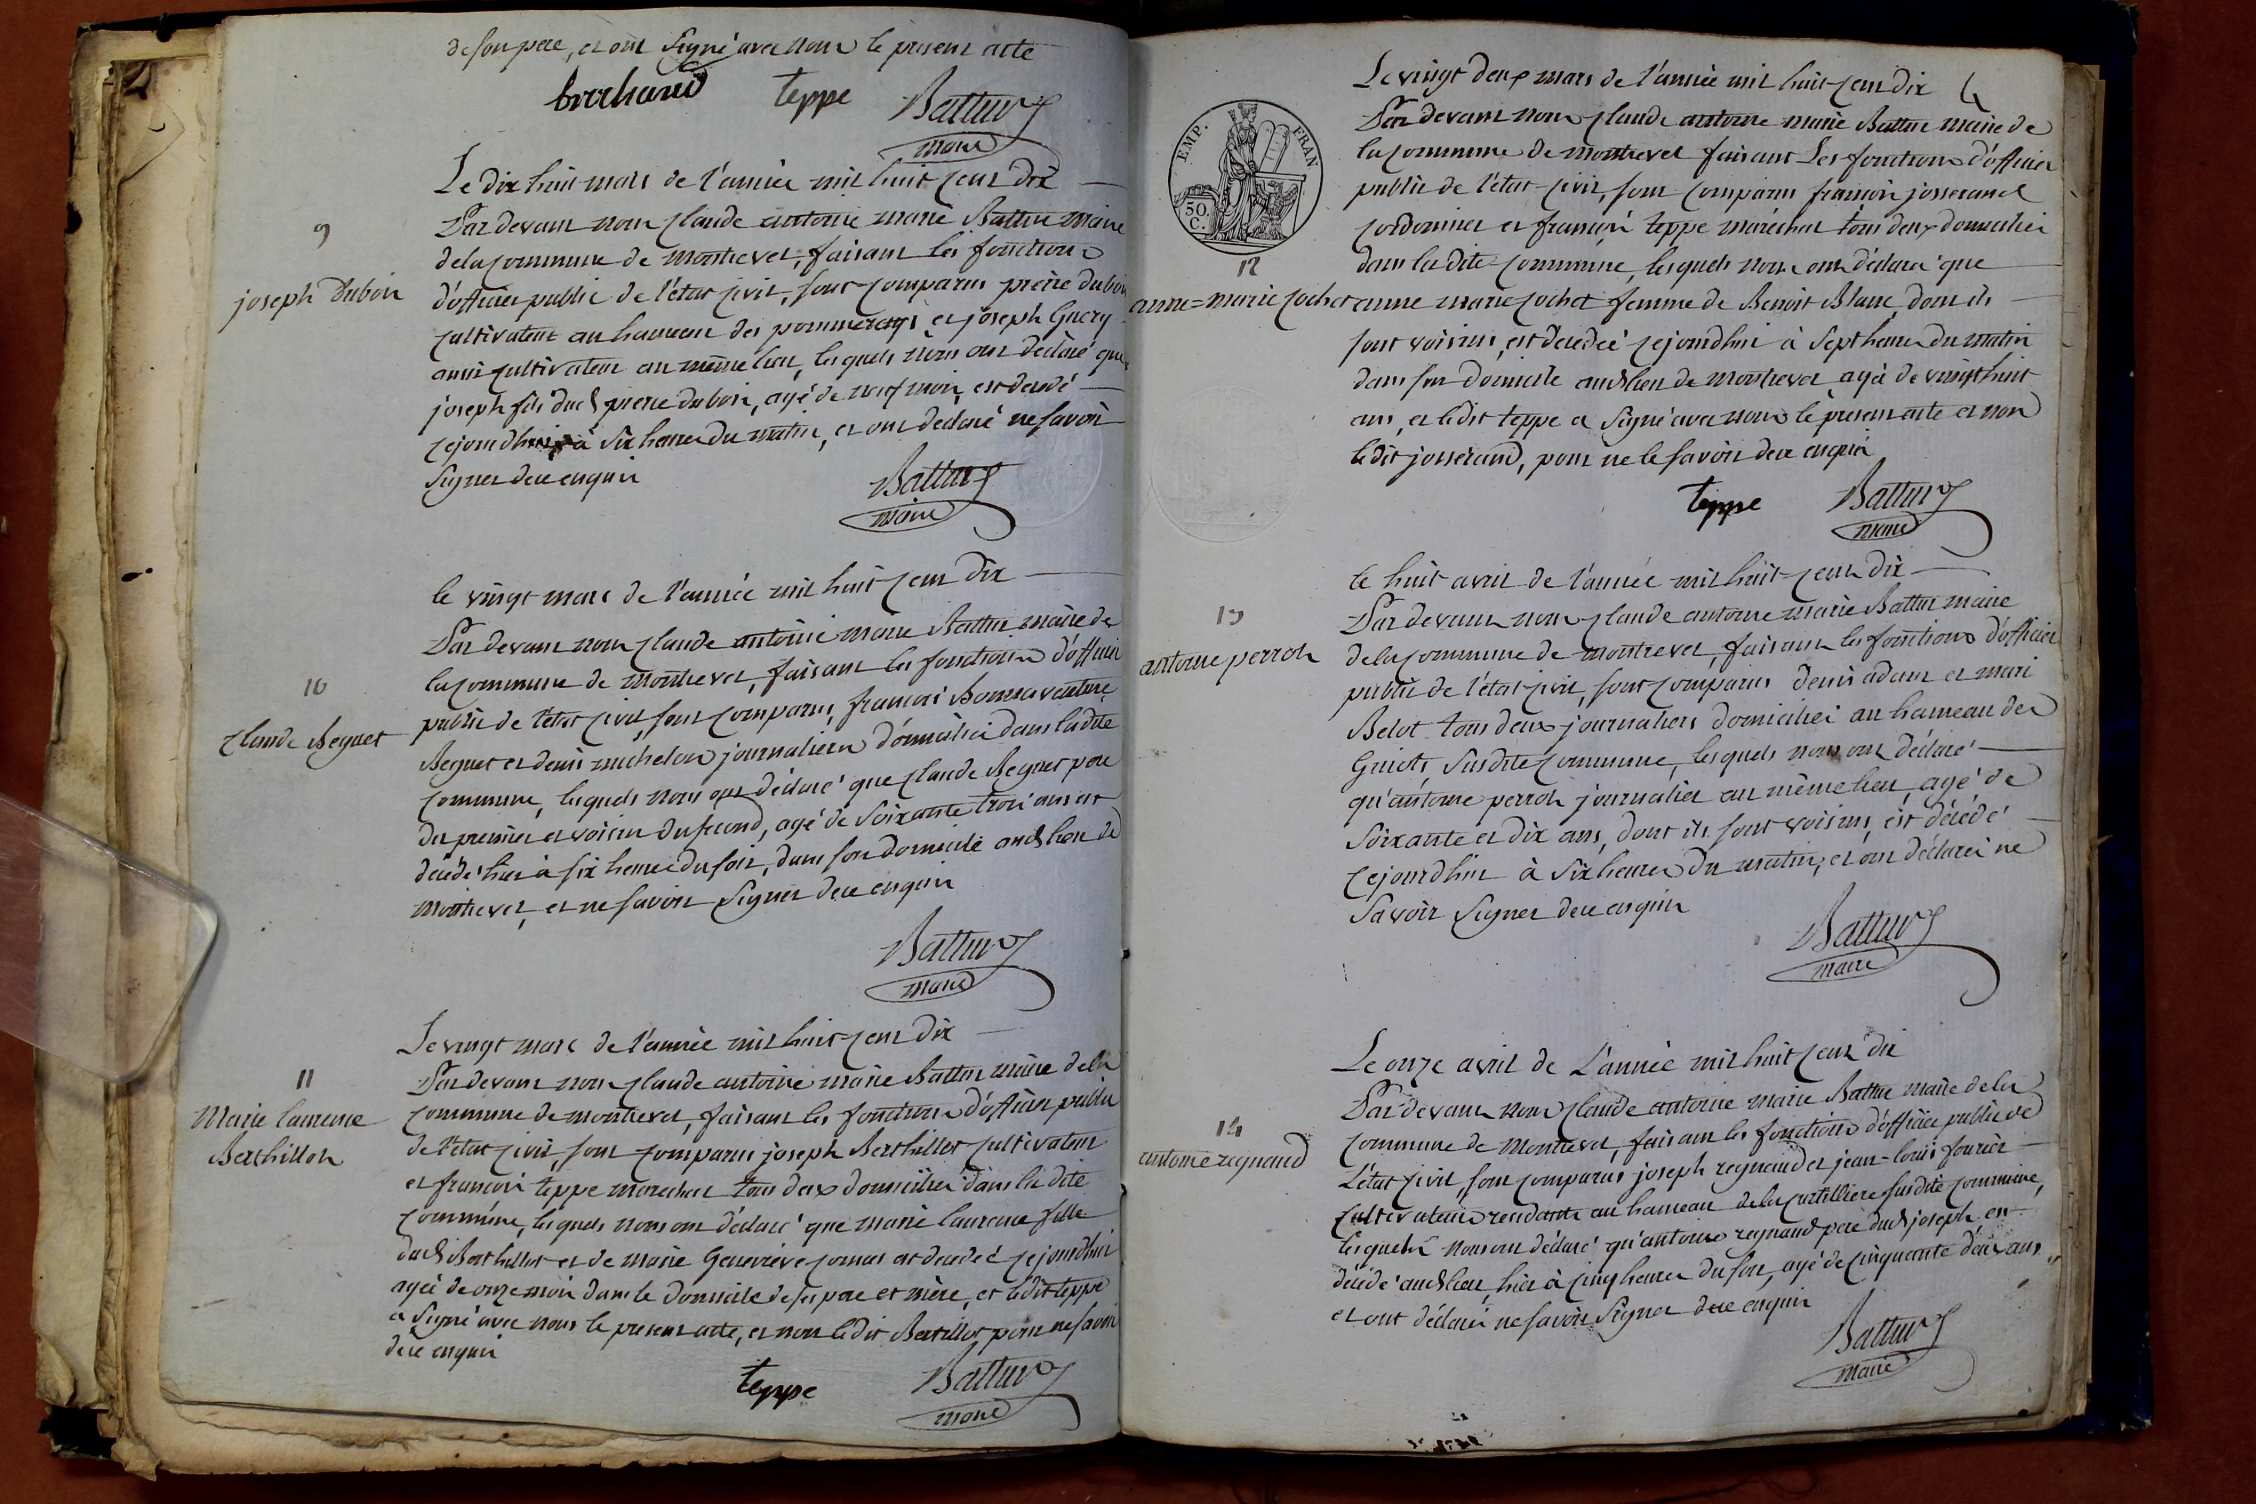 de son pere, et ont signé avec nous le present acte
brochand teppe Battur
maire
Le dix huit mars de l'année mil huit cent dix
9
Par devant nous Claude antoine marie Battur maire
de la commune de montrevel, faisant les fonctions
joseph Dubois
d'officier public de l'état civil, sont comparus pierre dubois
cultivateur au hameau des et joseph Guery
aussi cultivateur au même lieu, lesquels nous ont déclaré que
joseph fils dud pierre dubois, agé de neuf mois, est decedé
cejourdhui à six heures du matin, et ont declaré ne savoir
signer de ce enquis
Battur
maire
le vingt mars de l'année mil huit cent dix
Par devant nous Claude antoine marie Battur maire de
10
la commune de montrevel, faisant les fonctions d'officier
Claude Beguet
public de l'état civil, sont comparus, francois Bonnaventure
Beguet et denis michelon journaliers domiciliés dans ladite
commune, lesquels nous ont déclaré que Claude Beguet pere
du premier et voisin du second, agé de soixante trois ans est
décédé hier à six heures du soir, dans son domicile aud lieu de
montrevel, et ne savoir signer de ce enquis
Battur
maire
Le vingt mars de l'année mil huit cent dix
11
Par devant nous Claude antoine marie Battur maire de la
Marie laurence
Berthillot
commune de montrevel, faisant les fonctions d'officier public
de l'état civil, sont comparus joseph Berthillot cultivateur
et francois teppe marechal tous deux domiciliés dans la dite
commune, lesquels nous ont déclaré que marie laurence fille
dud Berthillot et de marie Genevieve est decedeé cejourdhui
agée de onze mois dans le domicile de ses pere et mère, et ledit teppe
a signé avec nous le present acte, et non ledit Bertillot pour ne savoir
de ce enquis
teppe Battur
maire
4
EMP. FRAN
50. C.
Le vingt deux mars de l'année mil huit cent dix
Par devant nous Claude antoine marie Battur maire de
la commune de montrevel faisant Les fonctions d'officier
public de l'état civil, sont comparus francois josserand
cordonnier et francois teppe maréchal tous deux domiciliés
12
dans la dite commune, lesquels nous ont déclaré que
anne=marie cochet
anne marie cochet femme de Benoit Blanc, dont ils
sont voisins, est decedeé cejourdhui à sept heures du matin
dans son domicile aud lieu de montrevel agée de vingt huit
ans, et ledit teppe a signé avec nous le present acte et non
ledit josserand, pour ne le savoir de ce enquis
teppe Battur
maire
Le huit avril de l'année mil huit cent dix
13
Par devant nous Claude antoine marie Battur maire
antoine perrot
de la commune de montrevel, faisant les fonctions d'officier
public de l'état civil, sont comparus denis adam et mari
Belot tous deux journaliers domiciliés au hameau des
Guiots susdite commune, lesquels nous ont déclaré
qu'antoine perrot journalier au même lieu, agé de
soixante et dix ans, dont ils sont voisins, est décédé
cejourdhui à six heures du matin, et ont déclaré ne
savoir signer de ce enquis
Battur
maire
Le onze avril de L'année mil huit cent dix
14
Par devant nous Claude antoine marie Battur maire de la
antoine regnaud
commune de Montrevel, faisant les fonctions d'officier public de
L'état civil, sont comparus joseph regnaud et jean-louis fourier
cultivateurs au hameau de la susdite commune,
lesquels nous ont déclaré qu'antoine regnaud pere dud joseph, est
décédé aud lieu, hier à cinq heures du soir, agé de cinquante deux ans
et ont déclaré ne savoir signer de ce enquis
Battur
maire